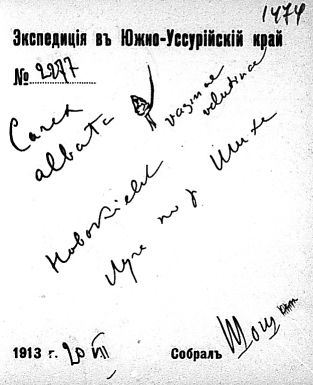 1474
Экспедиція въ Южно-Уссурійскій край
№ 2277
Carex
albata
vaginae
velutinae
Новокіевск
Луга по р Шихе
1913 г. 20 VII
Собралъ